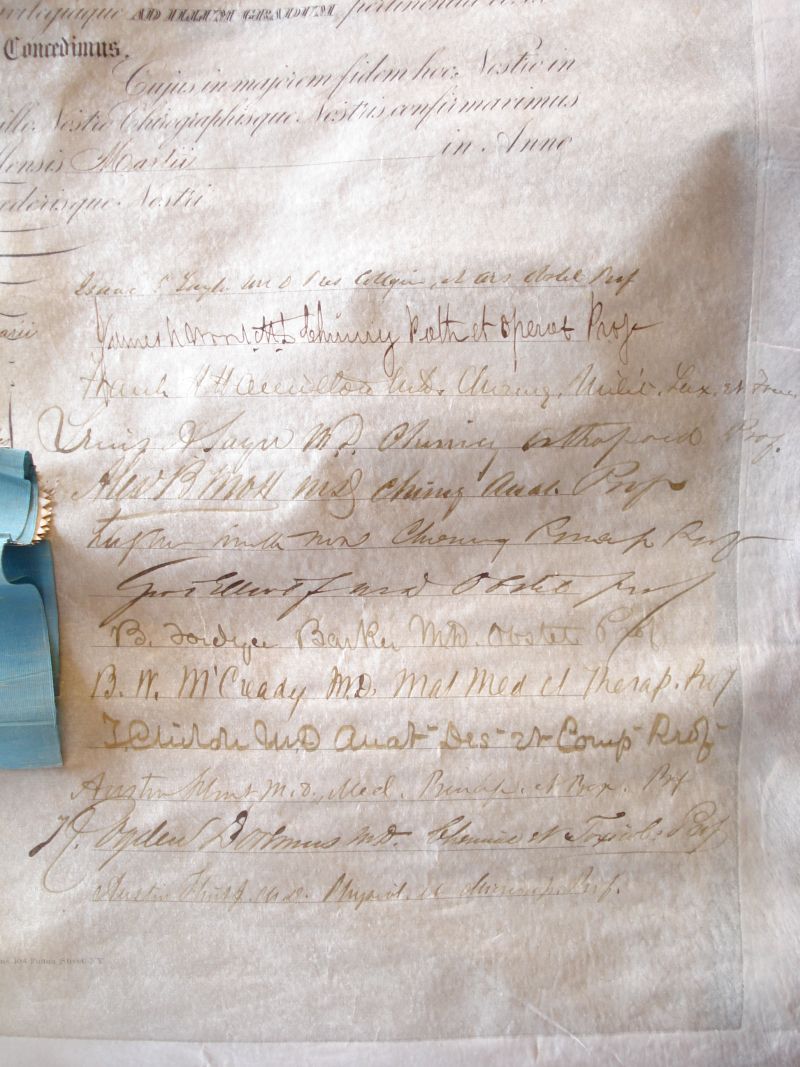 AD ILLUM GRADUM
Concedimus.
Cujus in majorem fidem hoc Nostro in
Nostro Chirographisque Nostris confirmavimus
Mensis Martii in Anno
Nostri
Isaac E Taylor M D Pres Collegii, et Obstet Prof
James R Wood M.D. Chirurg Path et Operat Prof
Frank H Hamilton M.D. Chirurg, Milit. Lux. et Frac
Lewis A Sayre M.D. Chirurg orthopoed Prof.
Alex B Mott MD Chirurg Anat. Prof
Stephen Smith MD Chirurg Princip Prof
Geo T Elliot Jr M D Obstet Prof
B. Fordyce Barker M.D. Obstet Prof
B. W. McCready M.D. Mat Med et Therap. Prof
MD Anat Des et Comp Prof
Austin Flint M.D. Med. Princip. et Prax. Prof
R. Ogden Doremus M.D. Chemiae et Toxicol. Prof
Austin Flint Jr. M.D. Physiol. et Prof.